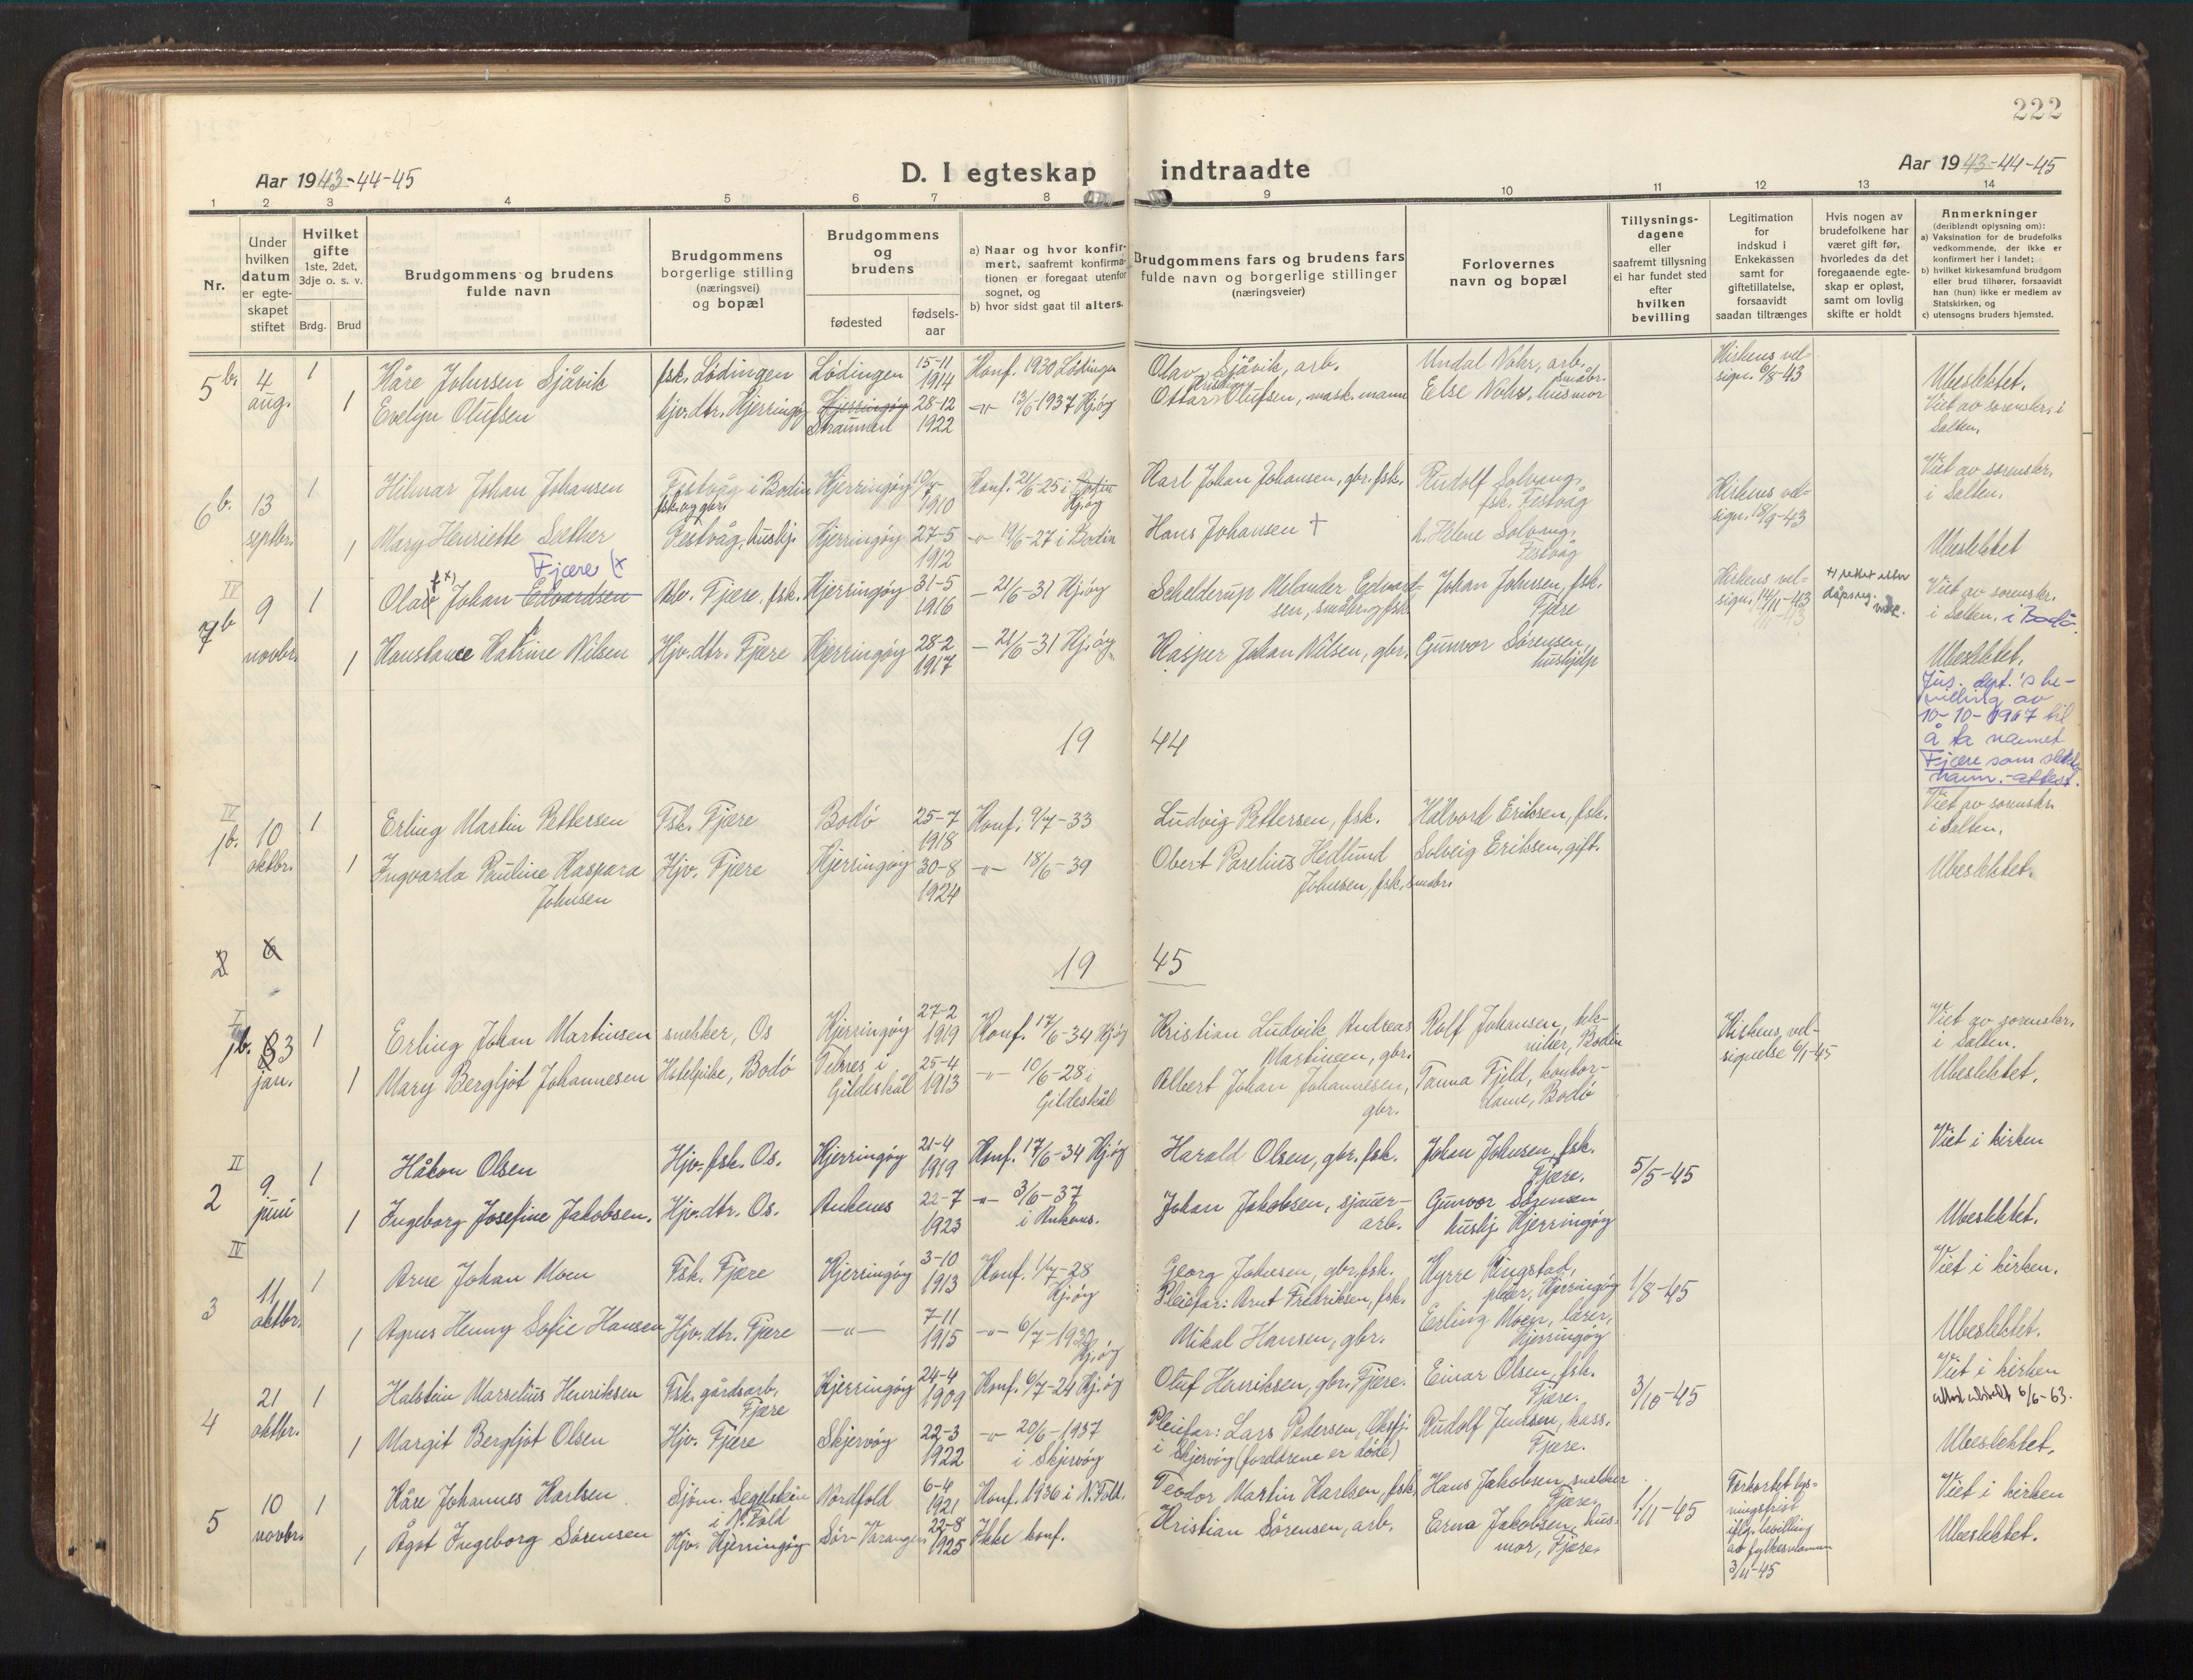 222
Aar 1943-44-45
D. I egteskap indtraadte
Aar 1943-44-45
1 2 3 4 5 6 7 8 9 10 11 12 13 14
Nr.
Under
hvilken
datum
er egte-
skapet
stiftet
Hvilket
gifte
1ste, 2det,
3dje o. s. v.
Brdg. Brud
Brudgommens og brudens
fulde navn
Brudgommens
borgerlige stilling
(næringsvei)
og bopæl
Brudgommens
og
brudens
fødested
fødsels-
aar
a) Naar og hvor konfir-
mert, saafremt konfirma-
tionen er foregaat utenfor
sognet, og
b) hvor sidst gaat til alters.
Brudgommens fars og brudens fars
fulde navn og borgerlige stillinger
(næringsveier)
Forlovernes
navn og bopæl
Tillysnings-
dagene
eller
saafremt tillysning
ei har fundet sted
efter
hvilken
bevilling
Legitimation
for
indskud i
Enkekassen
samt for
giftetillatelse,
forsaavidt
saadan tiltrænges
Hvis nogen av
brudefolkene har
været gift før,
hvorledes da det
foregaaende egte-
skap er opløst,
samt om lovlig
skifte er holdt
Anmerkninger
(deriblandt oplysning om):
a) Vaksination for de brudefolks
vedkommende, der ikke er
konfirmert her i landet;
b) hvilket kirkesamfund brudgom
eller brud tilhører, forsaavidt
han (hun) ikke er medlem av
Statskirken, og
c) utensogns bruders hjemsted.
5 b. 4 aug. 1 Kåre Johnsen Sjåvik fsk. Lødingen Lødingen 15-11 1914 Konf. 1930 Lødingen Olav Sjåvik, arb. Undal Nohr, arb. småbr. Kirkens vel-
sign. 6/8-43 Ubeslektet.
1 Evelyn Olufsen hjv. dtr. Kjerringøy Kjerringøy Straumen 28-12 1922 -"- 13/6-1937 Kj.øy Ottar Kristian Olufsen, mask. mann Else Nohr, husmor Viet av sorenskr. i
Salten.
6 b. 13 septbr. 1 Hilmar Johan Johansen Festvåg i Bodin fsk. og gbr. Kjerringøy 1910 Konf. 21/6-25 i Bodin Kj.øy Karl Johan Johansen, gbr. fsk. Rudolf Solvang,
fsk. Festvåg Kirkens vel-
sign. 18/9-43 Viet av sorenskr.
i Salten.
1 Mary Henriette Sæther Festvåg, hushj. Kjerringøy 27-5 1912 -"- 19/6-27 i Bodin Hans Johansen † h. Helene Solvang,
Festvåg Ubeslektet
IV Fjære (x
7 b 9 novbr. 1 Olav x) Johan Edvardsen Arb. Fjære, fsk. Kjerringøy 31-5 1916 - 21/6-31 Kj.øy Schelderup Melander Edvard-
sen, småbr. og fsk. Johan Johnsen, fsk.
Fjære Kirkens vel-
sign. 14/11-43 +) rettet etter
dåpsreg. Viet av sorenskr.
i Salten. i Bodø.
1 Konstance Katrine Nilsen Hjv. dtr. Fjære Kjerringøy 28-2 1917 - 21/6-31 Kj.øy. Kasper Johan Nilsen, gbr. Gunvor Sørensen
hushjelp Ubeslektet.
Jus. dept.'s be-
villing av
10-10-1947 til
å ta navnet
Fjære som slekts-
navn. - attest.
19 44
IV
1 b. 10 oktbr. 1 Erling Martin Pettersen Fsk. Fjære Bodø 25-7 1918 Konf. 9/7-33 Ludvig Pettersen, fsk. Halvord Eriksen, fsk. Viet av sorenskr.
i Salten.
1 Ingvarda Pauline Kaspara
Johnsen Hjv. Fjære Kjerringøy 30-8 1924 -"- 18/6-39 Obert Parelius Hedlund
Johnsen, fsk. småbr. Solveig Eriksen, gift. Ubeslektet.
2 6
19 45
I
1 b. 3 jan. 1 Erling Johan Martinsen snekker, Os Kjerringøy 27-2 1919 Konf. 17/6-34 Kj.øy Kristian Ludvik Andreas
Martinsen, gbr. Rolf Johansen, tek-
niker, Bodin Kirkens vel-
signelse 6/1-45 Viet av sorenskr.
i Salten.
1 Mary Bergljot Johannesen Hotelpike, Bodø i
Gildeskål 25-4 1913 -"- 10/6-28 i
Gildeskål Albert Johan Johannesen,
gbr. Tanna Fjeld, kontor-
dame, Bodø Ubeslektet.
II
2 9 juni 1 Håkon Olsen Hjv. fsk. Os. Kjerringøy 21-4 1919 Konf. 17/6-34 Kj.øy Harald Olsen, gbr. fsk. Johan Johnsen, fsk.
Fjære. 5/5-45 Viet i kirken
1 Ingeborg Josefine Jakobsen. Hjv. dtr. Os. Ankenes 22-7 1923 -"- 3/6-37
i Ankenes. Johan Jakobsen, sjauer-
arb. Gunvor Sørensen
hushj. Kjerringøy Ubeslektet.
IV
3 11 oktbr. 1 Arne Johan Moen Fsk. Fjære Kjerringøy 3-10 1913 Konf. 1/7-28
Kj.øy Georg Johnsen, gbr. fsk.
Pleiefar: Arnt Fredriksen, fsk. Kyrre Ringstad,
Kjerringøy 1/8-45 Viet i kirken.
1 Agnes Henny Sofie Hansen Hjv. dtr. Fjære -"- 7-11 1915 -"- 6/7-1930
Kj.øy Mikal Hansen, gbr. Erling Moen, lærer,
Kjerringøy Ubeslektet.
4 21 oktbr. 1 Halstein Marselius Henriksen Fsk. gårdsarb.
Fjære Kjerringøy 24-4 1909 Konf. 6/7-24 Kj.øy Oluf Henriksen, gbr. Fjære. Einar Olsen, fsk.
Fjære. 3/10-45 Viet i kirken
attest utstedt 6/6-63.
1 Margit Bergljot Olsen Hjv. Fjære Skjervøy 22-3 1922 -"- 20/6-1937
i Skjervøy Pleiefar: Lars Pedersen,
i Skjervøy (foreldrene er døde) Rudolf Jentsen, kass.
Fjære. Ubeslektet.
5 10 novbr. 1 Kåre Johannes Karlsen Sjøm. Segelstein
i N. Fold Nordfold 6-4 1921 Konf. 1936 i N. Fold. Teodor Martin Karlsen, fsk. Hans Jakobsen snekker
Fjære. 1/11-45 Forkortet lys-
ningsfrist
iflg. bevilling
av fylkesmannen
3/11-45 Viet i kirken
1 Ågot Ingeborg Sørensen Hjv. Kjerringøy Sør-Varanger 22-8 1925 Ikke konf. Kristian Sørensen, arb. Erna Jakobsen, hus-
mor, Fjære. Ubeslektet.